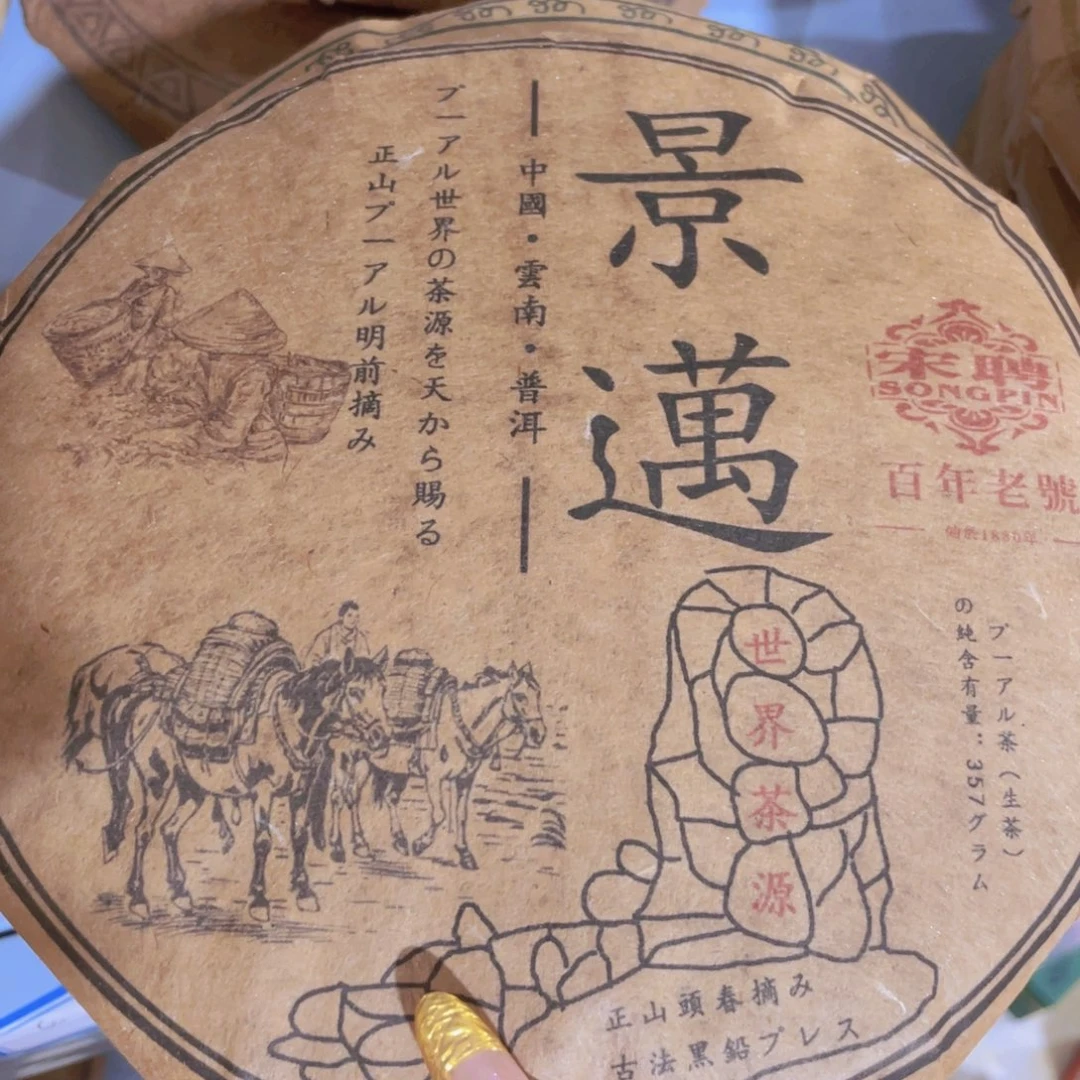 景邁
中國・雲南・普洱
プーアル世界の茶源を天から賜る
正山プーアル明前摘み
宋聘
SONGPIN
百年老號
始於1880年
プーアル茶（生茶）
の純含有量：357グラム
世界茶源
正山頭春摘み
古法黒鉛プレス